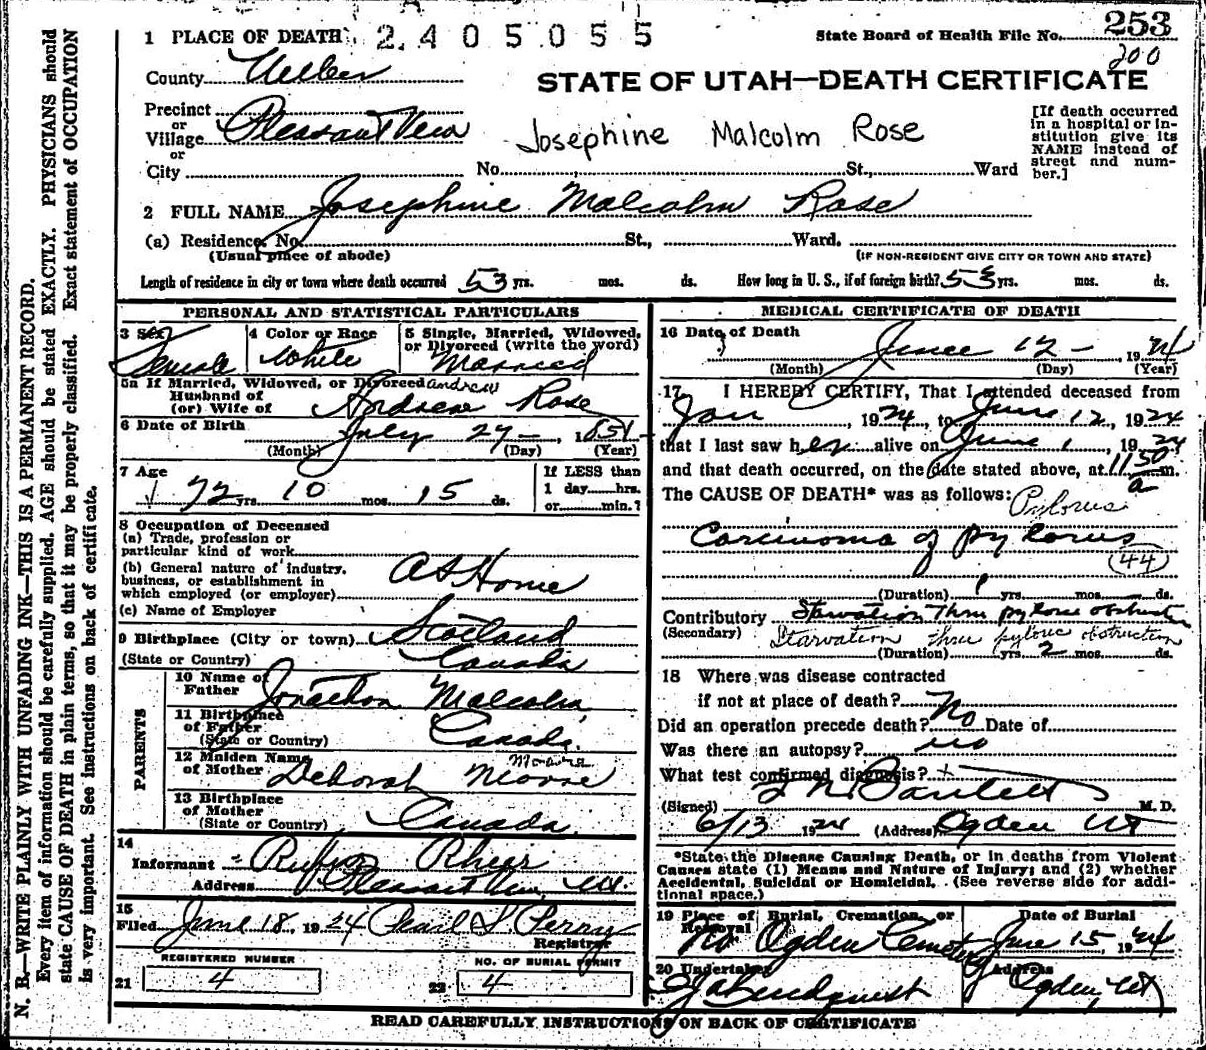 253
1 PLACE OF DEATH 2405055 State Board of Health File No.
200
County Weber
STATE OF UTAH—DEATH CERTIFICATE
Precinct
or
Village Pleasant View
or
City No. St., Ward
Josephine Malcolm Rose
[If death occurred
in a hospital or in-
stitution give its
NAME instead of
street and num-
ber.]
2 FULL NAME Josephine Malcolm Rose
(a) Residence. No. St., Ward.
(Usual place of abode) (IF NON-RESIDENT GIVE CITY OR TOWN AND STATE)
Length of residence in city or town where death occurred 53 yrs. mos. ds. How long in U. S., if of foreign birth? 53 yrs. mos. ds.
PERSONAL AND STATISTICAL PARTICULARS
3 Sex
Female
4 Color or Race
White
5 Single, Married, Widowed,
or Divorced (write the word)
Married
5a If Married, Widowed, or Divorced Andrew
Husband of
(or) Wife of Andrew Rose
6 Date of Birth July 27 — , 1851
(Month) (Day) (Year)
7 Age
72 yrs. 10 mos. 15 ds.
If LESS than
1 day......hrs.
or......min.?
8 Occupation of Deceased
(a) Trade, profession or
particular kind of work
(b) General nature of industry,
business, or establishment in
which employed (or employer) At Home
(c) Name of Employer
9 Birthplace (City or town) Scotland
(State or Country) Canada
PARENTS
10 Name of
Father Jonathon Malcolm
11 Birthplace
of Father
(State or Country) Canada.
12 Maiden Name
of Mother Deborah Moore
13 Birthplace
of Mother
(State or Country) Canada.
14
Informant Rufus Rhees
Address Pleasant View, Ut.
15
Filed June 18, 1924 Pearl S. Perry
Registrar
REGISTERED NUMBER
21 4
NO. OF BURIAL PERMIT
22 4
MEDICAL CERTIFICATE OF DEATH
16 Date of Death
June 12 — , 1924
(Month) (Day) (Year)
17 I HEREBY CERTIFY, That I attended deceased from
Jan , 1924, to June 12, 1924
that I last saw her alive on June 1 , 1924
and that death occurred, on the date stated above, at 1150 a m.
The CAUSE OF DEATH* was as follows: Pylorus
Carcinoma of pylorus
(44)
(Duration) 1 yrs. mos. ds.
Contributory Starvation thru pyloric obstruction
(Secondary) Starvation thru pyloric obstruction
(Duration) yrs. 2 mos. ds.
18 Where was disease contracted
if not at place of death? No
Did an operation precede death? No Date of
Was there an autopsy? no
What test confirmed diagnosis? +
(Signed) Bartlett M. D.
6/13 1924 (Address) Ogden Ut
*State the Disease Causing Death, or in deaths from Violent
Causes state (1) Means and Nature of Injury; and (2) whether
Accidental, Suicidal or Homicidal. (See reverse side for addi-
tional space.)
19 Place of Burial, Cremation, or
Removal
No. Ogden Cemetery
Date of Burial
June 15, 1924
20 Undertaker
Lindquist
Address
Ogden, Ut
READ CAREFULLY INSTRUCTIONS ON BACK OF CERTIFICATE
N. B.—WRITE PLAINLY WITH UNFADING INK—THIS IS A PERMANENT RECORD.
Every item of information should be carefully supplied. AGE should be stated EXACTLY. PHYSICIANS should
state CAUSE OF DEATH in plain terms, so that it may be properly classified. Exact statement of OCCUPATION
is very important. See instructions on back of certificate.